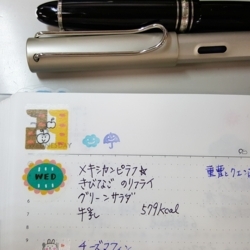 WED
メキシカンピラフ☆
きびなごのリフライ
グリーンサラダ
牛乳 579kcal
チーズマフィン